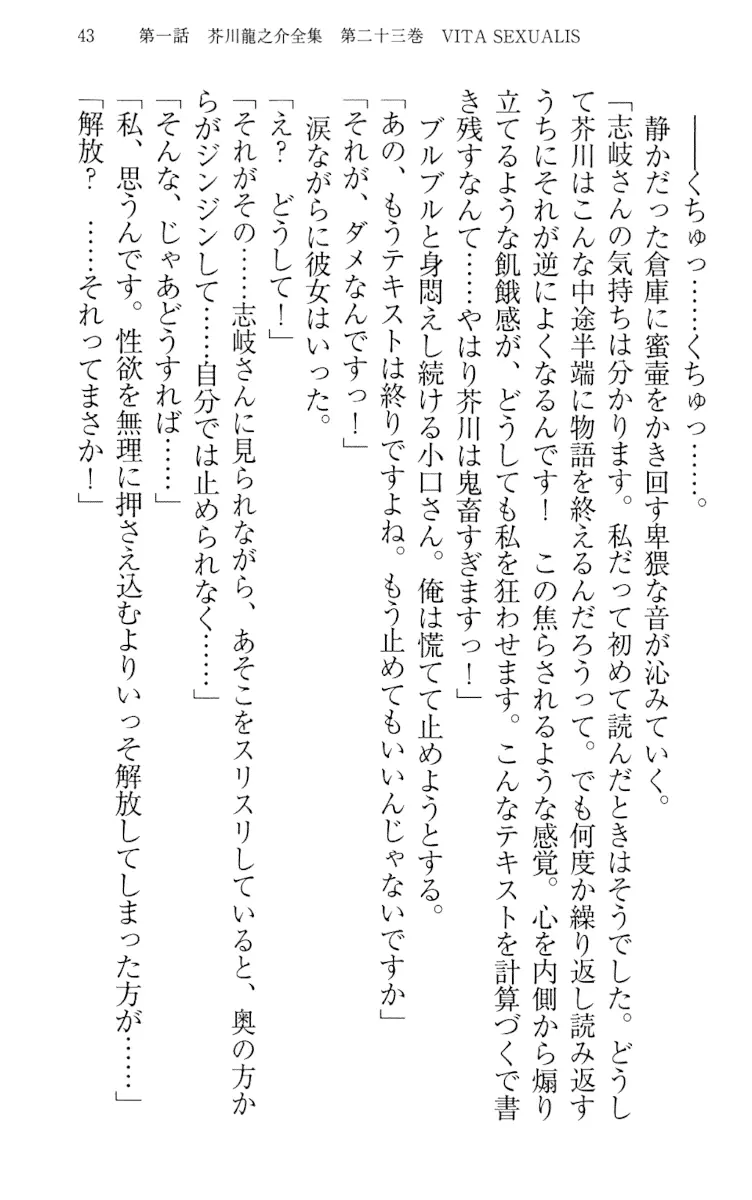 43　第一話　芥川龍之介全集　第二十三巻　VITA SEXUALIS
――くちゅっ……くちゅっ……。
静かだった倉庫に蜜壷をかき回す卑猥な音が沁みていく。
「志岐さんの気持ちは分かります。私だって初めて読んだときはそうでした。どうし
て芥川はこんな中途半端に物語を終えるんだろうって。でも何度か繰り返し読み返す
うちにそれが逆によくなるんです！　この焦らされるような感覚。心を内側から煽り
立てるような飢餓感が、どうしても私を狂わせます。こんなテキストを計算づくで書
き残すなんて……やはり芥川は鬼畜すぎますっ！」
ブルブルと身悶えし続ける小口さん。俺は慌てて止めようとする。
「あの、もうテキストは終りですよね。もう止めてもいいんじゃないですか」
「それが、ダメなんですっ！」
涙ながらに彼女はいった。
「え？　どうして！」
「それがその……志岐さんに見られながら、あそこをスリスリしていると、奥の方か
らがジンジンして……自分では止められなく……」
「そんな、じゃあどうすれば……」
「私、思うんです。性欲を無理に押さえ込むよりいっそ解放してしまった方が……」
「解放？　……それってまさか！」